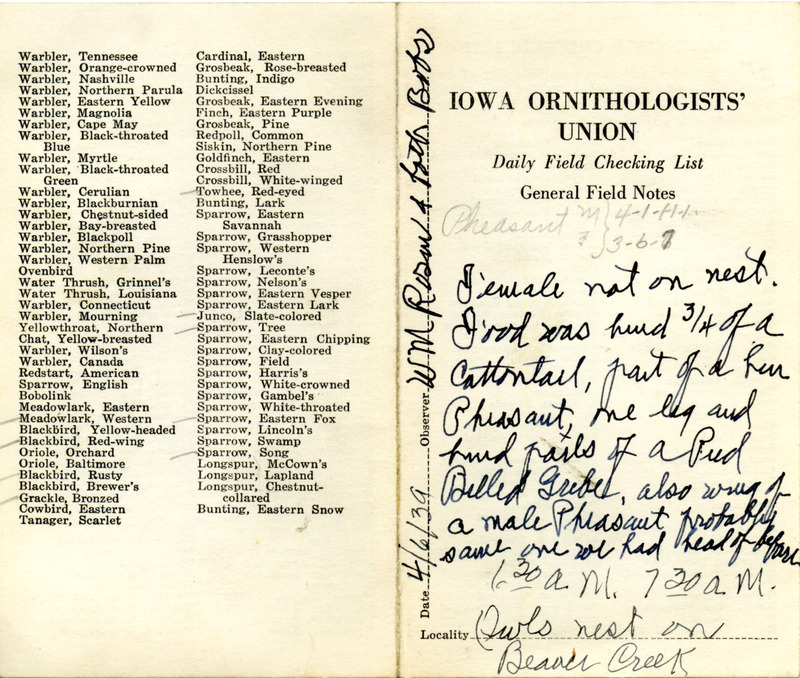 Warbler, Tennessee
Warbler, Orange-crowned
Warbler, Nashville
Warbler, Northern Parula
Warbler, Eastern Yellow
Warbler, Magnolia
Warbler, Cape May
Warbler, Black-throated
Blue
Warbler, Myrtle
Warbler, Black-throated
Green
Warbler, Cerulian
Warbler, Blackburnian
Warbler, Chestnut-sided
Warbler, Bay-breasted
Warbler, Blackpoll
Warbler, Northern Pine
Warbler, Western Palm
Ovenbird
Water Thrush, Grinnel's
Water Thrush, Louisiana
Warbler, Connecticut
Warbler, Mourning
Yellowthroat, Northern
Chat, Yellow-breasted
Warbler, Wilson's
Warbler, Canada
Redstart, American
Sparrow, English
Bobolink
Meadowlark, Eastern
Meadowlark, Western
Blackbird, Yellow-headed
Blackbird, Red-wing
Oriole, Orchard
Oriole, Baltimore
Blackbird, Rusty
Blackbird, Brewer's
Grackle, Bronzed
Cowbird, Eastern
Tanager, Scarlet
Cardinal, Eastern
Grosbeak, Rose-breasted
Bunting, Indigo
Dickcissel
Grosbeak, Eastern Evening
Finch, Eastern Purple
Grosbeak, Pine
Redpoll, Common
Siskin, Northern Pine
Goldfinch, Eastern
Crossbill, Red
Crossbill, White-winged
Towhee, Red-eyed
Bunting, Lark
Sparrow, Eastern
Savannah
Sparrow, Grasshopper
Sparrow, Western
Henslow's
Sparrow, Leconte's
Sparrow, Nelson's
Sparrow, Eastern Vesper
Sparrow, Eastern Lark
Junco, Slate-colored
Sparrow, Tree
Sparrow, Eastern Chipping
Sparrow, Clay-colored
Sparrow, Field
Sparrow, Harris's
Sparrow, White-crowned
Sparrow, Gambel's
Sparrow, White-throated
Sparrow, Eastern Fox
Sparrow, Lincoln's
Sparrow, Swamp
Sparrow, Song
Longspur, McCown's
Longspur, Lapland
Longspur, Chestnut-
collared
Bunting, Eastern Snow
Date 4/6/39 Observer WM Rosene & Both Bobs
IOWA ORNITHOLOGISTS'
UNION
Daily Field Checking List
General Field Notes
Pheasant M 4-1-11-1-
3-6-7
Female not on nest.
Food was hind 3/4 of a
Cottontail, part of a hen
Pheasant, one leg and
hind parts of a Pied
Billed Grebe, also wing of
a male Pheasant probably
same one we had head of before
6 30 a.M. 7 30 a.M.
Locality Owls nest on
Beaver Creek